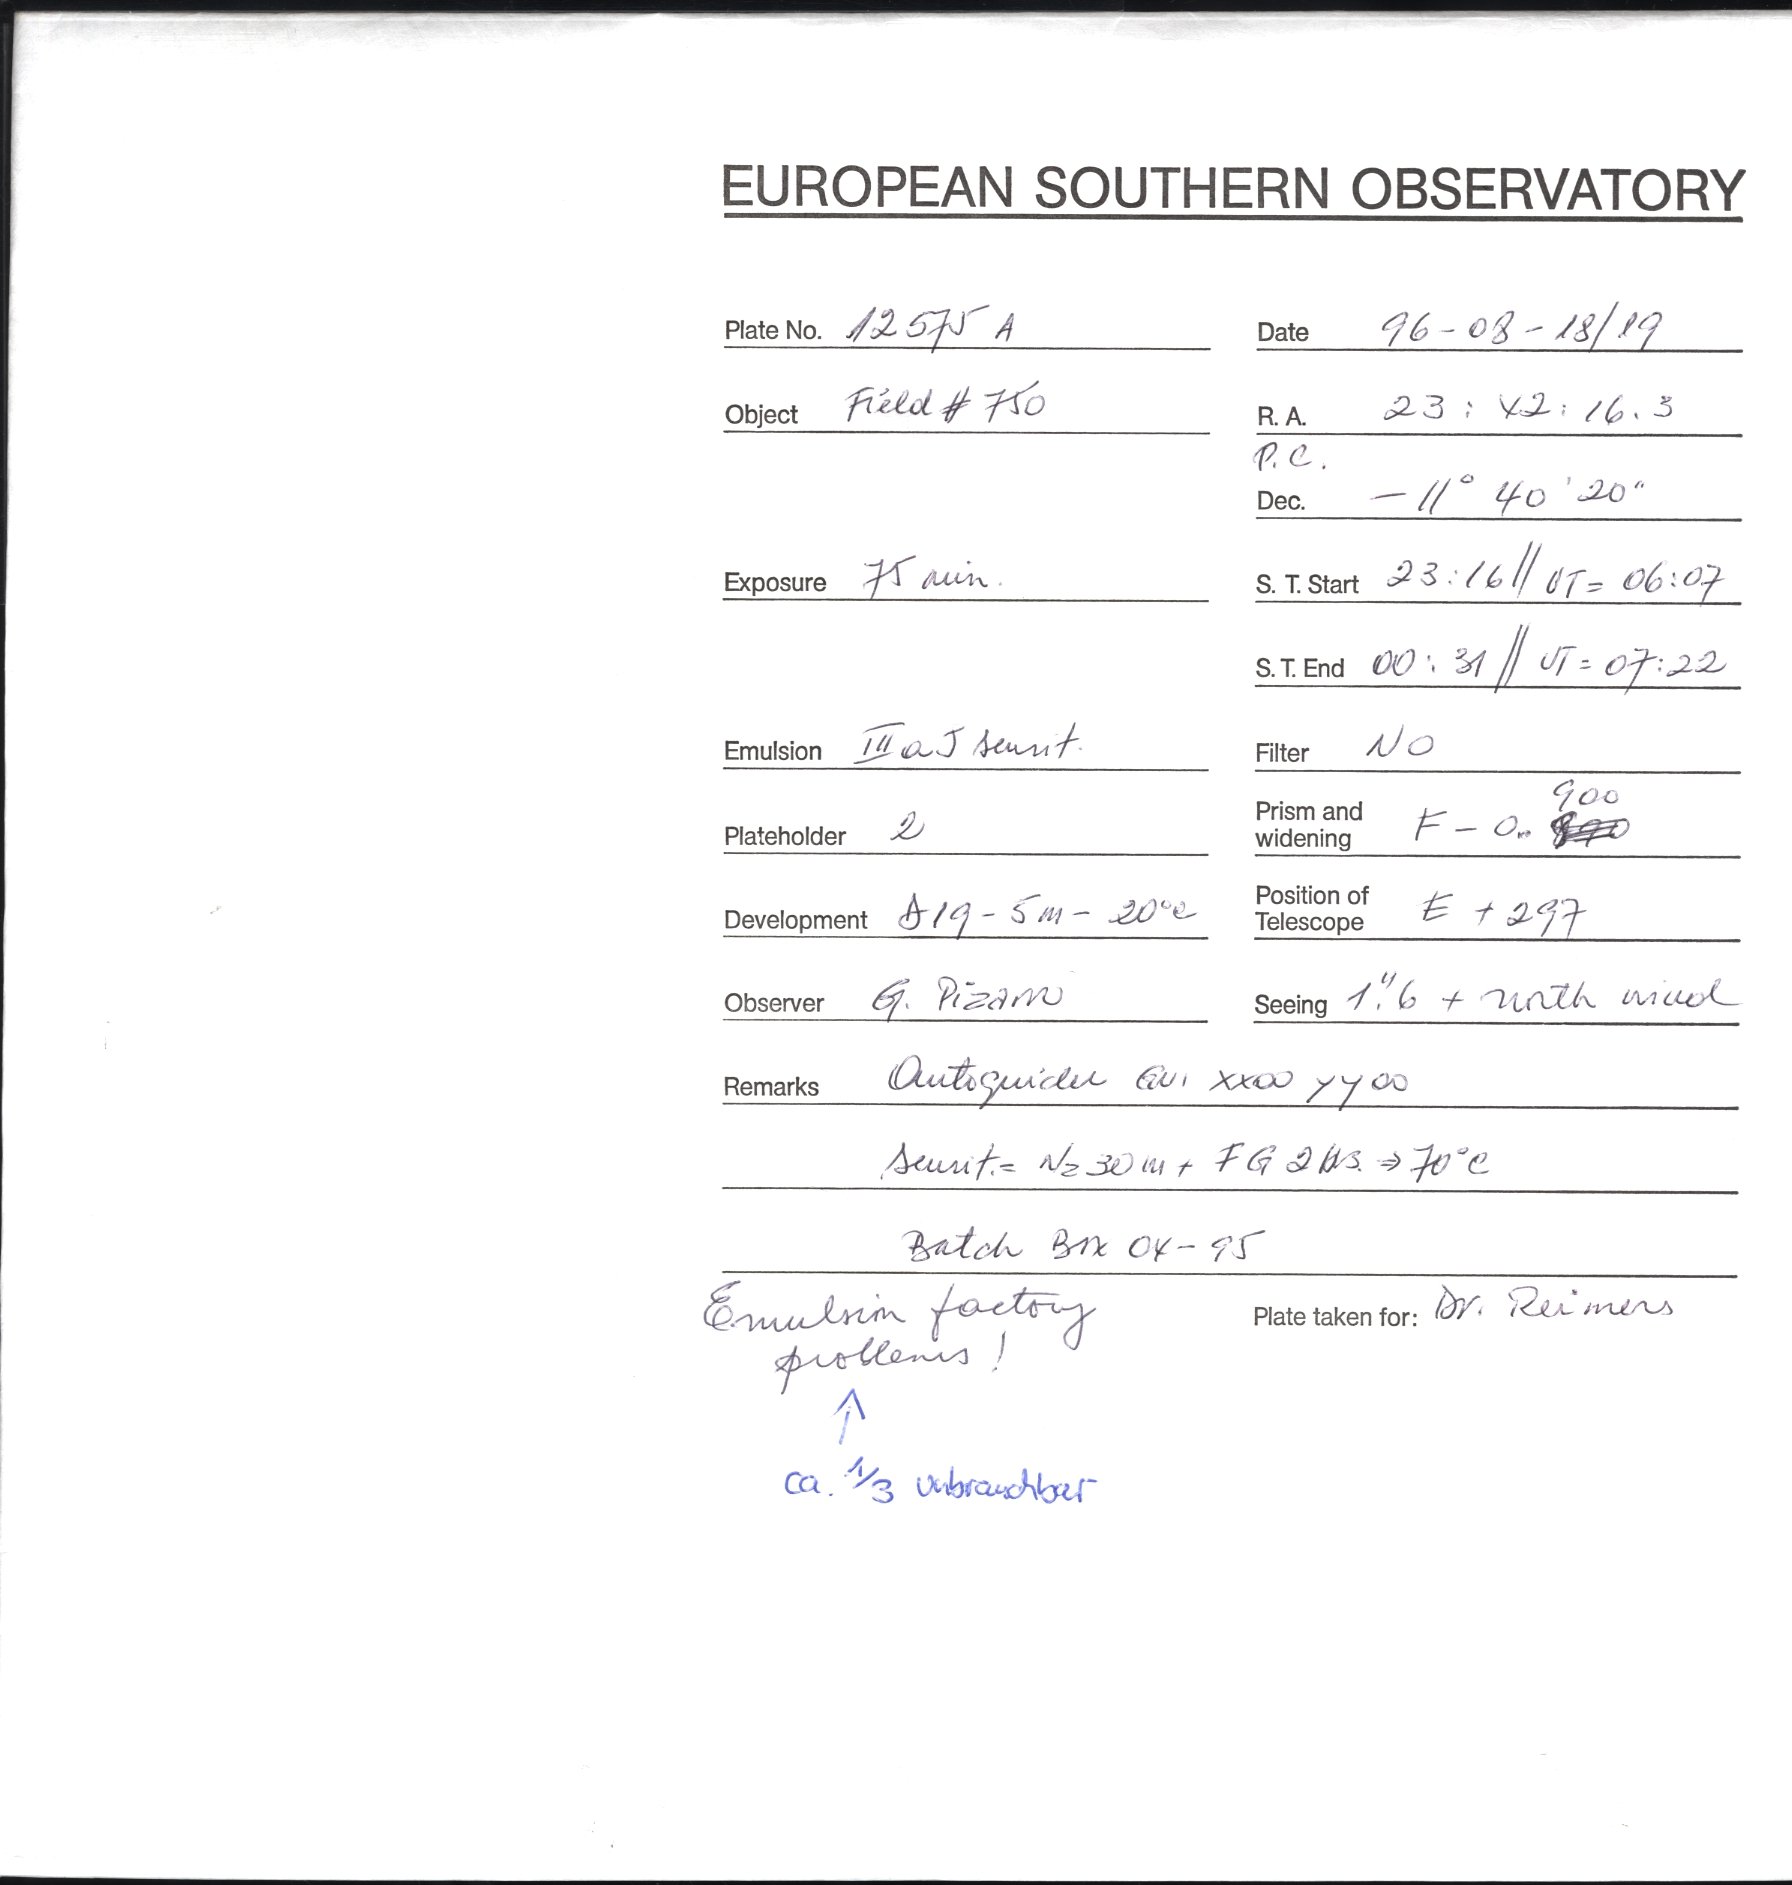 EUROPEAN SOUTHERN OBSERVATORY
Plate No. 12575 A
Date 96-08-18/19
Object Field # 750
R. A. 23 : 42 : 16.3
P.C.
Dec. -11° 40' 20"
Exposure 75 min.
S. T. Start 23:16 // UT= 06:07
S. T. End 00:31 // UT= 07:22
Emulsion III a J sensit.
Filter NO
Plateholder 2
900
Prism and widening F - 0..
Development D19 - 5m - 20°C
Position of Telescope E + 297
Observer G. Pizarro
Seeing 1".6 + north wind
Remarks Autoguider xx00 yy00
sensit.= N2 30m + FG 2 Hs. ⇒ 70°C
Batch Box 04-95
Emulsion factory
problems!
Plate taken for: Dr. Reimers
↑
ca. 1/3 unbrauchbar